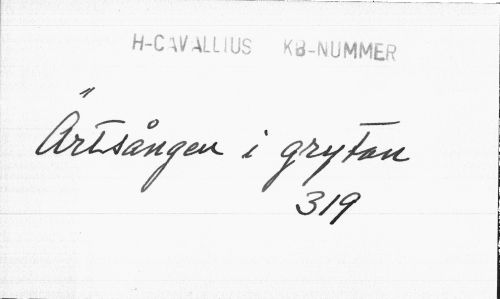 H-CAVALLIUS KB-NUMMER
Ärtsången i grytan
319